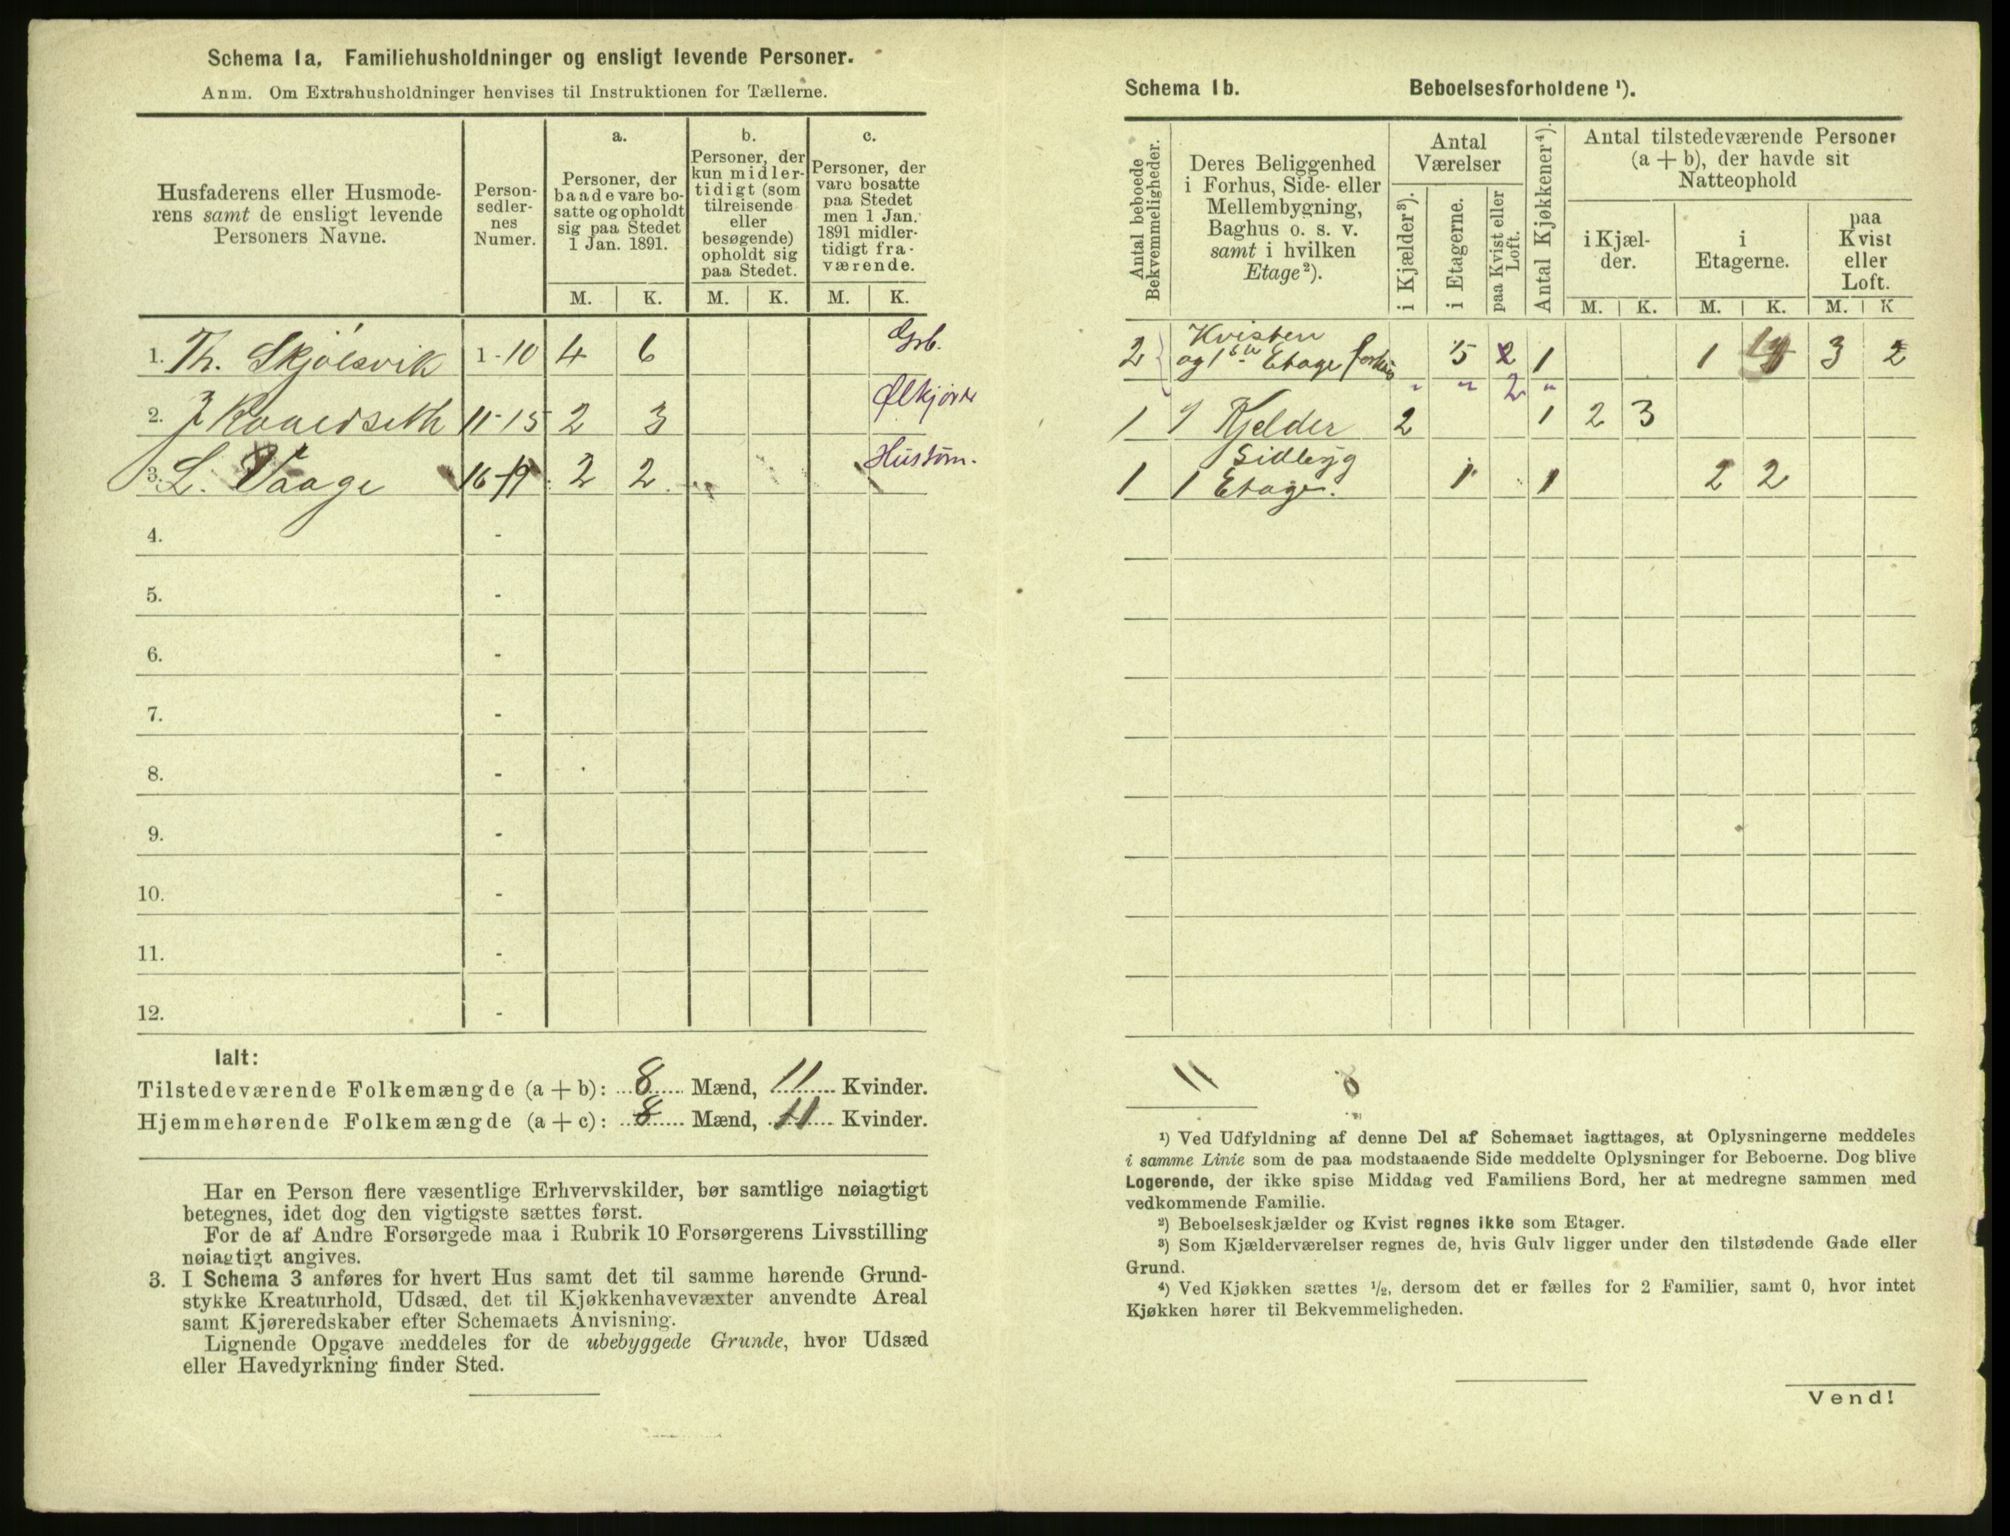 Schema 1a. Familiehusholdninger og ensligt levende Personer.
Anm. Om Extrahusholdninger henvises til Instruktionen for Tællerne.
Husfaderens eller Husmode-
rens samt de ensligt levende
Personers Navne.
Person-
sedler-
nes
Numer.
a.
Personer, der
baade vare bo-
satte og opholdt
sig paa Stedet
1 Jan. 1891.
b.
Personer, der
kun midler-
tidigt (som
tilreisende
eller
besøgende)
opholdt sig
paa Stedet.
c.
Personer, der
vare bosatte
paa Stedet
men 1 Jan.
1891 midler-
tidigt fra-
værende.
M. K. M. K. M. K.
1. Th. Skjølsvik 1-10 4 6 Grb.
2. 11-15 2 3 Ølkjører
3. L. Vaage 16-19 2 2 Hustøm.
4. -
5. -
6. -
7. -
8. -
9. -
10. -
11. -
12. -
Ialt:
Tilstedeværende Folkemængde (a + b): 8 Mænd, 11 Kvinder.
Hjemmehørende Folkemængde (a + c): 8 Mænd, 11 Kvinder.
Har en Person flere væsentlige Erhvervskilder, bør samtlige nøiagtigt
betegnes, idet dog den vigtigste sættes først.
For de af Andre Forsørgede maa i Rubrik 10 Forsørgerens Livsstilling
nøiagtigt angives.
3. I Schema 3 anføres for hvert Hus samt det til samme hørende Grund-
stykke Kreaturhold, Udsæd, det til Kjøkkenhavevæxter anvendte Areal
samt Kjøreredskaber efter Schemaets Anvisning.
Lignende Opgave meddeles for de ubebyggede Grunde, hvor Udsæd
eller Havedyrkning finder Sted.
Schema 1b. Beboelsesforholdene ¹).
Antal beboede
Bekvemmeligheder.
Deres Beliggenhed
i Forhus, Side- eller
Mellembygning,
Baghus o. s. v.
samt i hvilken
Etage²).
Antal
Værelser
i Kjælder³).
i Etagerne.
paa Kvist eller
Loft.
Antal Kjøkkener⁴).
Antal tilstedeværende Personer
(a + b), der havde sit
Natteophold
i Kjæl-
der.
i
Etagerne.
paa
Kvist
eller
Loft.
M. K. M. K. M. K
Kvisten
2 og 1ste Etage 5 2 1 1 4 3 2
" " 2 "
1 Kjelder 2 1 2 3
Sidbyg
1 1 Etage. 1 1 2 2
11 8
¹) Ved Udfyldning af denne Del af Schemaet iagttages, at Oplysningerne meddeles
i samme Linie som de paa modstaaende Side meddelte Oplysninger for Beboerne. Dog blive
Logerende, der ikke spise Middag ved Familiens Bord, her at medregne sammen med
vedkommende Familie.
²) Beboelseskjælder og Kvist regnes ikke som Etager.
³) Som Kjælderværelser regnes de, hvis Gulv ligger under den tilstødende Gade eller
Grund.
⁴) Ved Kjøkken sættes ½, dersom det er fælles for 2 Familier, samt 0, hvor intet
Kjøkken hører til Bekvemmeligheden.
Vend!